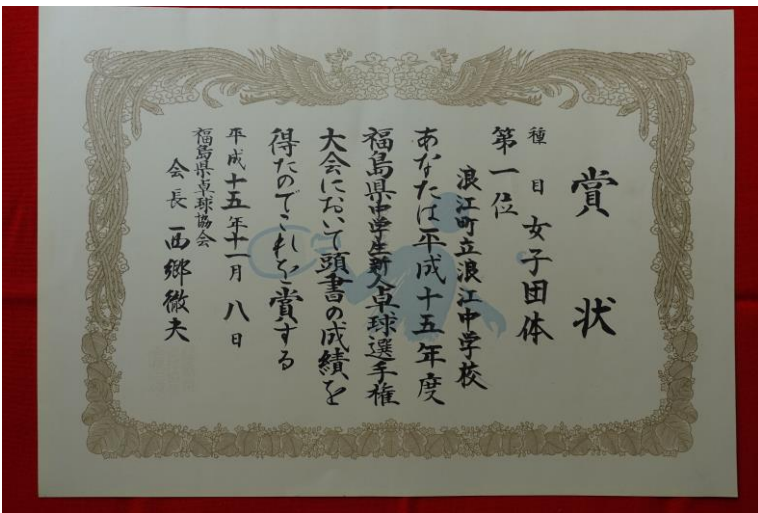 賞状
種目 女子団体
第一位
浪江町立浪江中学校
あなたは平成十五年度
福島県中学生新人卓球選手権
大会において頭書の成績を
得たのでこれを賞する
平成十五年十一月八日
福島県卓球協会
会長 西郷徹夫